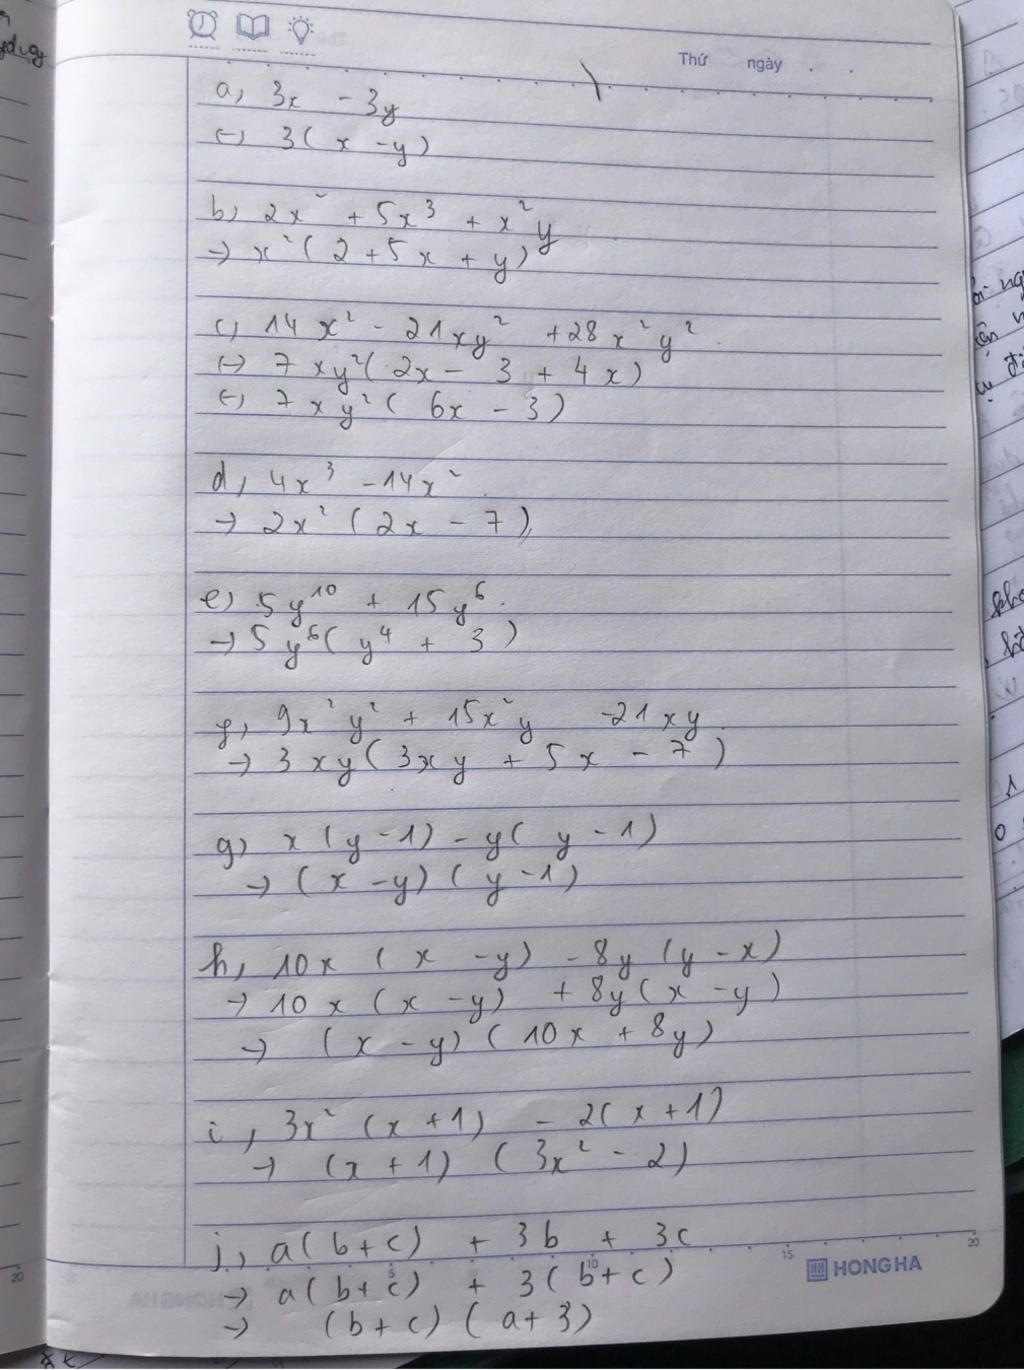 Thứ ngày . .
a, 3x - 3y
(-) 3(x - y)
b) 2x² + 5x³ + x²y
→ x²(2 + 5x + y)
c) 14x² - 21xy² + 28x²y²
(→ 7xy²(2x - 3 + 4x)
(-) 7xy²(6x - 3)
d, 4x³ - 14x²
→ 2x²(2x - 7)
e) 5y¹⁰ + 15y⁶.
→ 5y⁶(y⁴ + 3)
f, 9x²y² + 15x²y - 21xy
→ 3xy(3xy + 5x - 7)
g) x(y - 1) - y(y - 1)
→ (x - y)(y - 1)
h, 10x(x - y) - 8y(y - x)
→ 10x(x - y) + 8y(x - y)
→ (x - y)(10x + 8y)
i, 3x²(x + 1) - 2(x + 1)
→ (x + 1)(3x² - 2)
j, a(b + c) + 3b + 3c
→ a(b + c) + 3(b + c)
→ (b + c)(a + 3)
5 10 15 20
HONG HA
20